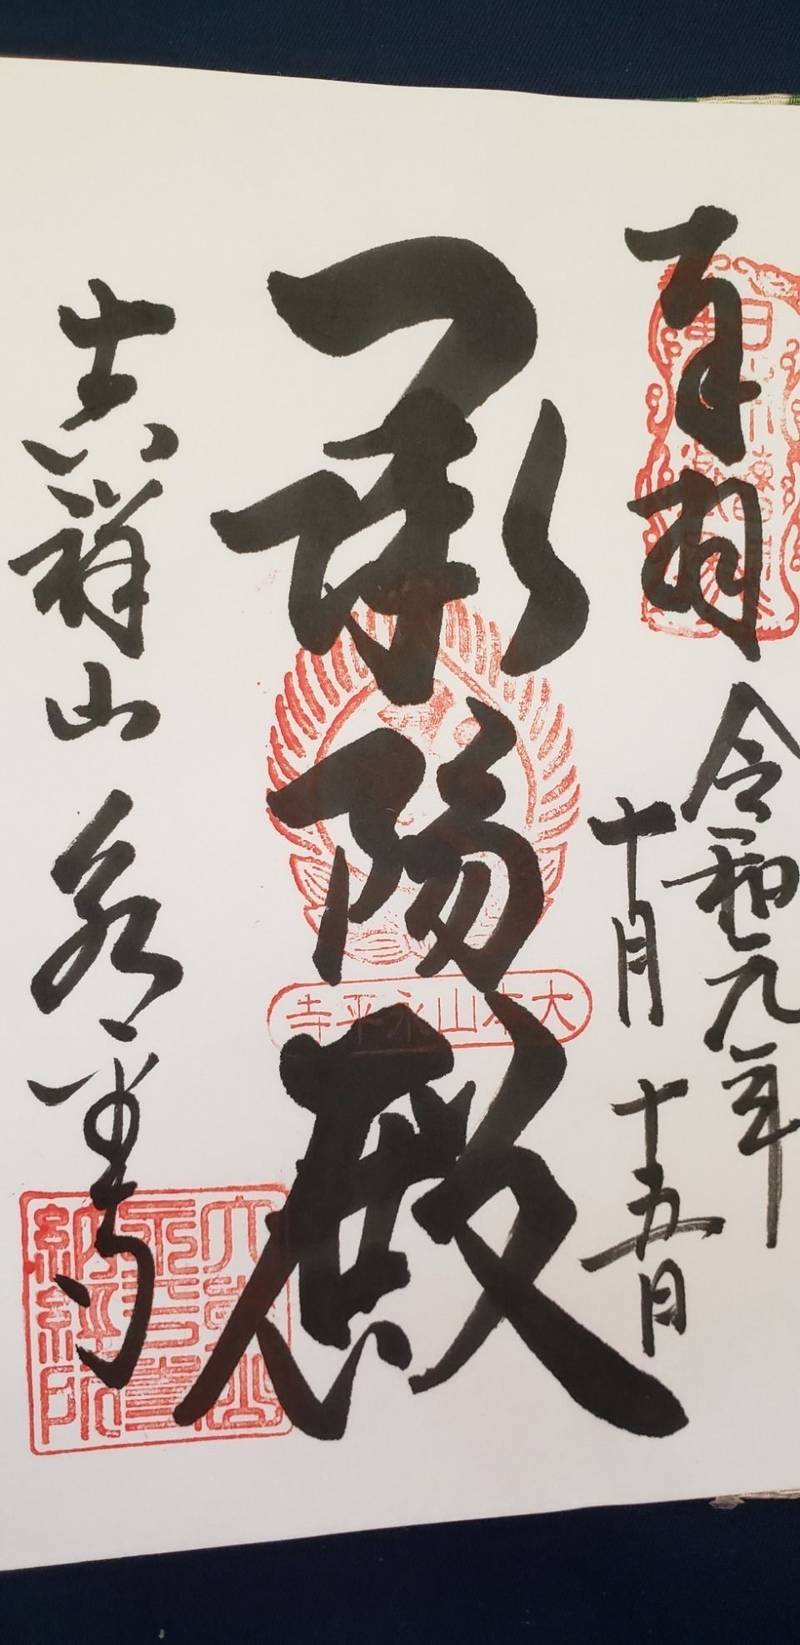 奉拝
令和元年
十月十五日
承陽殿
大本山永平寺
吉祥山永平寺
納経所